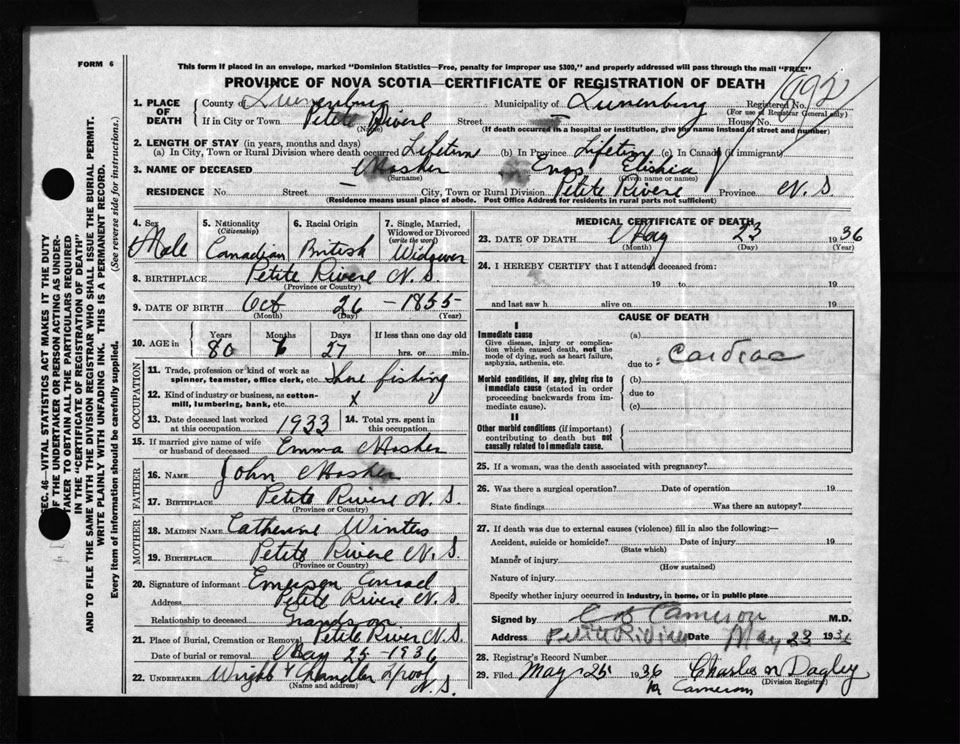 FORM 6
This form if placed in an envelope, marked "Dominion Statistics—Free, penalty for improper use $300," and properly addressed will pass through the mail "FREE"
PROVINCE OF NOVA SCOTIA—CERTIFICATE OF REGISTRATION OF DEATH
1. PLACE OF DEATH
County of Lunenburg Municipality of Lunenburg Registered No.
(For use of Registrar General only)
If in City or Town Petite Rivere Street House No.
(Name) (If death occurred in a hospital or institution, give the name instead of street and number)
2. LENGTH OF STAY (in years, months and days)
(a) In City, Town or Rural Division where death occurred Lifetime (b) In Province Lifetime (c) In Canada (if immigrant)
3. NAME OF DECEASED Mosher Enos Elishia
(Surname) (Given name or names)
RESIDENCE No Street City, Town or Rural Division Petite Rivere Province N. S.
(Residence means usual place of abode. Post Office Address for residents in rural parts not sufficient)
4. Sex
Male
5. Nationality
(Citizenship)
Canadian
6. Racial Origin
British
7. Single, Married, Widowed or Divorced
(write the word)
Widower
8. BIRTHPLACE Petite Rivere N. S.
(Province or Country)
9. DATE OF BIRTH Oct 26 - 1855
(Month) (Day) (Year)
10. AGE in
Years Months Days If less than one day old
80 6 27 hrs. or min.
OCCUPATION
11. Trade, profession or kind of work as spinner, teamster, office clerk, etc. Shore fishing
12. Kind of industry or business, as cotton-mill, lumbering, bank, etc. x
13. Date deceased last worked at this occupation 1933
14. Total yrs. spent in this occupation
15. If married give name of wife or husband of deceased Emma Mosher
FATHER
16. NAME John Mosher
17. BIRTHPLACE Petite Rivere N. S.
(Province or Country)
MOTHER
18. MAIDEN NAME Catherine Winters
19. BIRTHPLACE Petite Rivere N. S.
(Province or Country)
20. Signature of informant Emerson Conrad
Address Petite Rivere N. S.
Relationship to deceased Grandson
21. Place of Burial, Cremation or Removal Petite River N. S.
Date of burial or removal May 25 - 1936
22. UNDERTAKER Wright & Chandler N. S.
(Name and address)
MEDICAL CERTIFICATE OF DEATH
23. DATE OF DEATH May 23 1936
(Month) (Day) (Year)
24. I HEREBY CERTIFY that I attended deceased from:
19 to 19
and last saw h alive on 19
CAUSE OF DEATH
I
Immediate cause
Give disease, injury or complication which caused death, not the mode of dying, such as heart failure, asphyxia, asthenia, etc.
(a)
due to Cardiac
Morbid conditions, if any, giving rise to immediate cause (stated in order proceeding backwards from immediate cause).
(b)
due to
(c)
II
Other morbid conditions (if important) contributing to death but not causally related to immediate cause.
25. If a woman, was the death associated with pregnancy?
26. Was there a surgical operation? Date of operation 19
State findings Was there an autopsy?
27. If death was due to external causes (violence) fill in also the following:—
Accident, suicide or homicide? Date of injury 19
(State which)
Manner of injury
(How sustained)
Nature of injury
Specify whether injury occurred in industry, in home, or in public place
Signed by C B Cameron M.D.
Address Petite Riviere Date May 23 1936
28. Registrar's Record Number
29. Filed May 25 1936 Charles N Dagley
(Division Registrar)
Cameron
SEC. 46—VITAL STATISTICS ACT MAKES IT THE DUTY
OF THE UNDERTAKER OR PERSON ACTING AS UNDER-
TAKER TO OBTAIN ALL THE PARTICULARS REQUIRED
IN THE "CERTIFICATE OF REGISTRATION OF DEATH"
AND TO FILE THE SAME WITH THE DIVISION REGISTRAR WHO SHALL ISSUE THE BURIAL PERMIT.
WRITE PLAINLY WITH UNFADING INK. THIS IS A PERMANENT RECORD.
Every item of information should be carefully supplied. (See reverse side for instructions.)